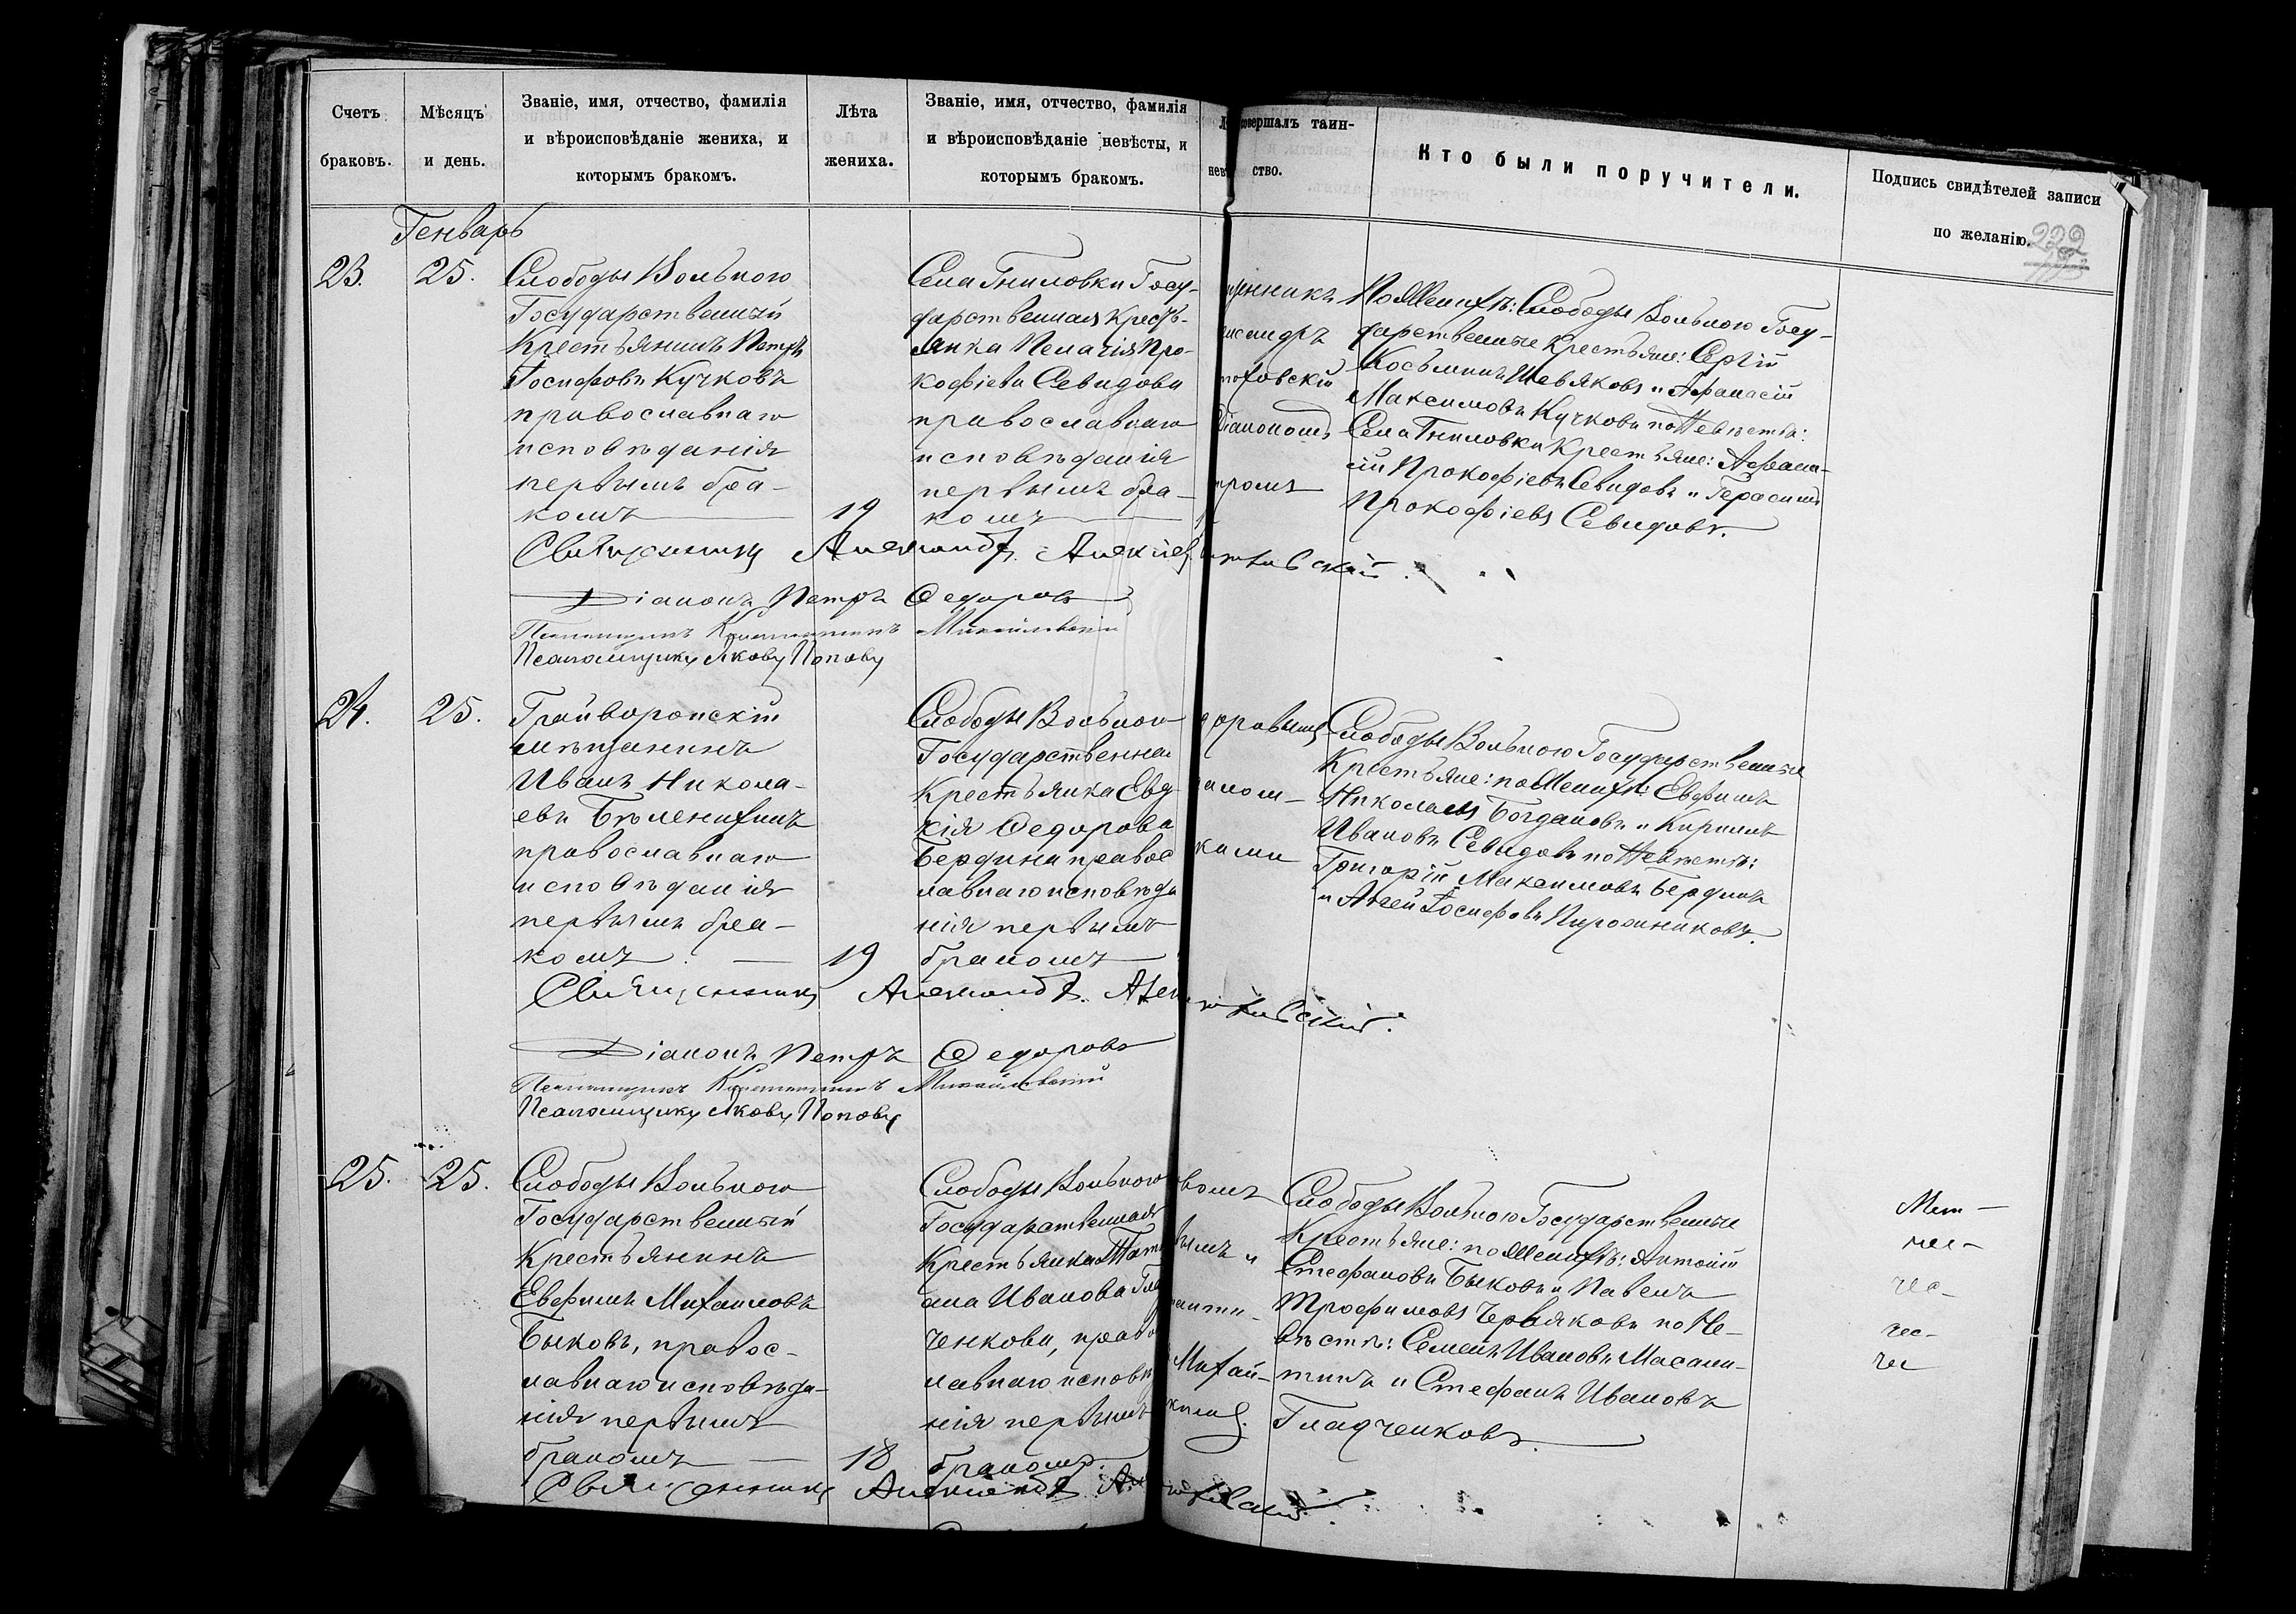 Счетъ
браковъ.
Мѣсяцъ
и день.
Званіе, имя, отчество, фамилія
и вѣроисповѣданіе жениха, и
которымъ бракомъ.
Лѣта
жениха.
Званіе, имя, отчество, фамилія
и вѣроисповѣданіе невѣсты, и
которымъ бракомъ.
совершалъ таин-
ство.
Кто были поручители.
Подпись свидѣтелей записи
по желанію.
222
Генварь
23.
25.
Слободы Вольного
Государственный
Крестьянинъ Петръ
Іосифовъ Кучковъ
православнаго
исповѣданія
первымъ бра-
комъ
19
Села Гниловки Госу-
дарственная кресть-
янка Пелагія Про-
кофіева Севидова
православнаго
исповѣданія
первымъ бра-
комъ
По Женихѣ: Слободы Вольного Госу-
дарственные Крестьяне: Сергій
Косьминъ Шевяковъ и Афанасій
Максимовъ Кучковъ по Невѣстѣ:
Села Гниловки Крестьяне: Афана-
сій Прокофіевъ Севидовъ и Герасимъ
Прокофіевъ Севидовъ.
Священникъ Александръ Алексіев
Діаконъ Петръ Федоровъ
Псаломщикъ Константинъ Михайловскій
Псаломщикъ Яковъ Поповъ
24.
25.
Грайворонскій
мѣщанинъ
Иванъ Никола-
евъ Бѣленихинъ
православнаго
исповѣданія
первымъ бра-
комъ.
19
Слободы Вольного
Государственная
Крестьянка Евд
кія Федорова
Бердина правос
лавнаго исповѣда
нія первымъ
бракомъ
Слободы Вольного Государственные
Крестьяне: по Женихѣ: Евфимъ
Николаевъ Богдановъ и Кириллъ
Ивановъ Севидовъ по Невѣстѣ:
Григорій Максимовъ Бердинъ
и Аггей Іосифовъ Пирожниковъ.
Священникъ Александръ
Діаконъ Петръ Федоровъ
Псаломщикъ Константинъ Михайловскій
Псаломщикъ Яковъ Поповъ
25.
25.
Слободы Вольного
Государственный
Крестьянинъ
Евфимъ Михаиловъ
Быковъ, правос-
лавнаго исповѣда-
нія первымъ
бракомъ
18
Слободы Вольного
Государственная
Крестьянка Тать
ана Иванова Глад
ченкова, право
лавнаго исповѣ
нія первымъ
бракомъ.
Слободы Вольного Государственные
Крестьяне: по Женихѣ: Антоній
Стефановъ Быковъ и Павелъ
Трофимовъ Червяковъ по Не-
вѣстѣ: Семенъ Ивановъ Масали-
тинъ и Стефанъ Ивановъ
Гладченковъ.
Священникъ Александръ